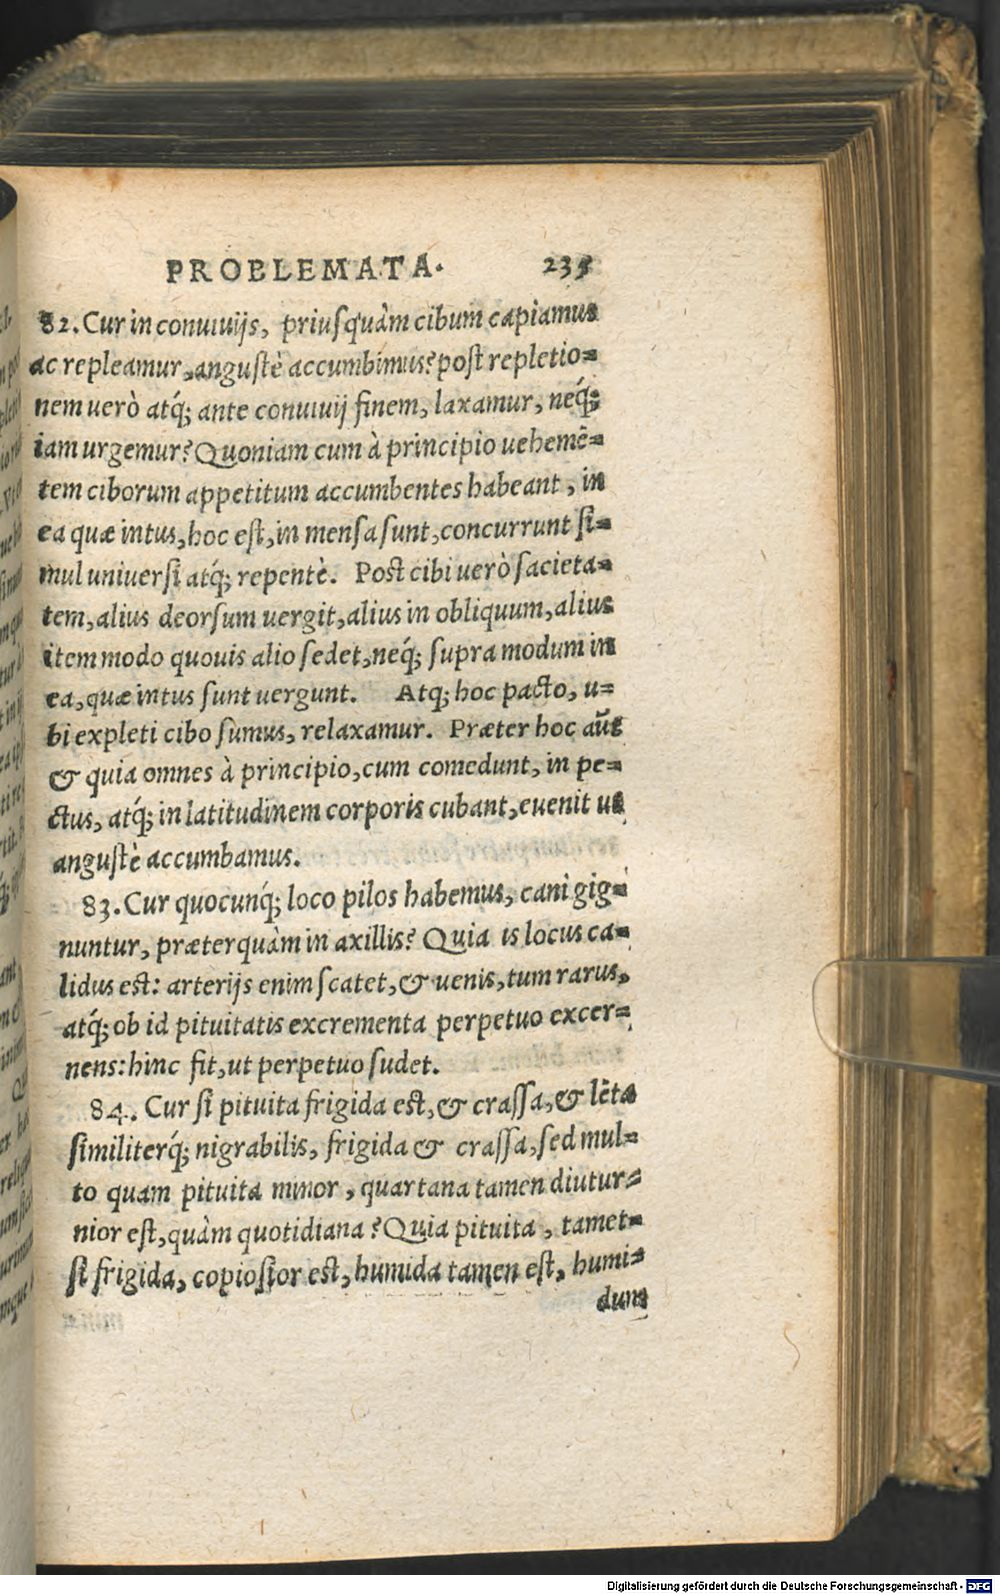 PROBLEMATA. 235
82. Cur in conuiuijs, priusquàm cibum capiamus
ac repleamur, angustè accumbimus? post repletio=
nem uerò atq́; ante conuiuij finem, laxamur, neq́;
iam urgemur? Quoniam cum à principio uehemē=
tem ciborum appetitum accumbentes habeant, in
ea quæ intus, hoc est, in mensa sunt, concurrunt si=
mul uniuersi atq́; repentè. Post cibi uerò sacieta=
tem, alius deorsum uergit, alius in obliquum, alius
item modo quouis alio sedet, neq́; supra modum in
ea, quæ intus sunt uergunt. Atq; hoc pacto, u=
bi expleti cibo sumus, relaxamur. Præter hoc aūt
& quia omnes à principio, cum comedunt, in pe=
ctus, atq́; in latitudinem corporis cubant, euenit ut
angustè accumbamus.
83. Cur quocunq́; loco pilos habemus, cani gig=
nuntur, præterquàm in axillis? Quia is locus ca=
lidus est: arterijs enim scatet, & uenis, tum rarus,
atq́; ob id pituitatis excrementa perpetuo excer=
nens: hinc fit, ut perpetuo sudet.
84. Cur si pituita frigida est, & crassa, & lēta
similiterq́; nigrabilis, frigida & crassa, sed mul=
to quam pituita minor, quartana tamen diutur=
nior est, quàm quotidiana? Quia pituita, tamet=
si frigida, copiosior est, humida tamen est, humi=
dum
Digitalisierung gefördert durch die Deutsche Forschungsgemeinschaft - DFG